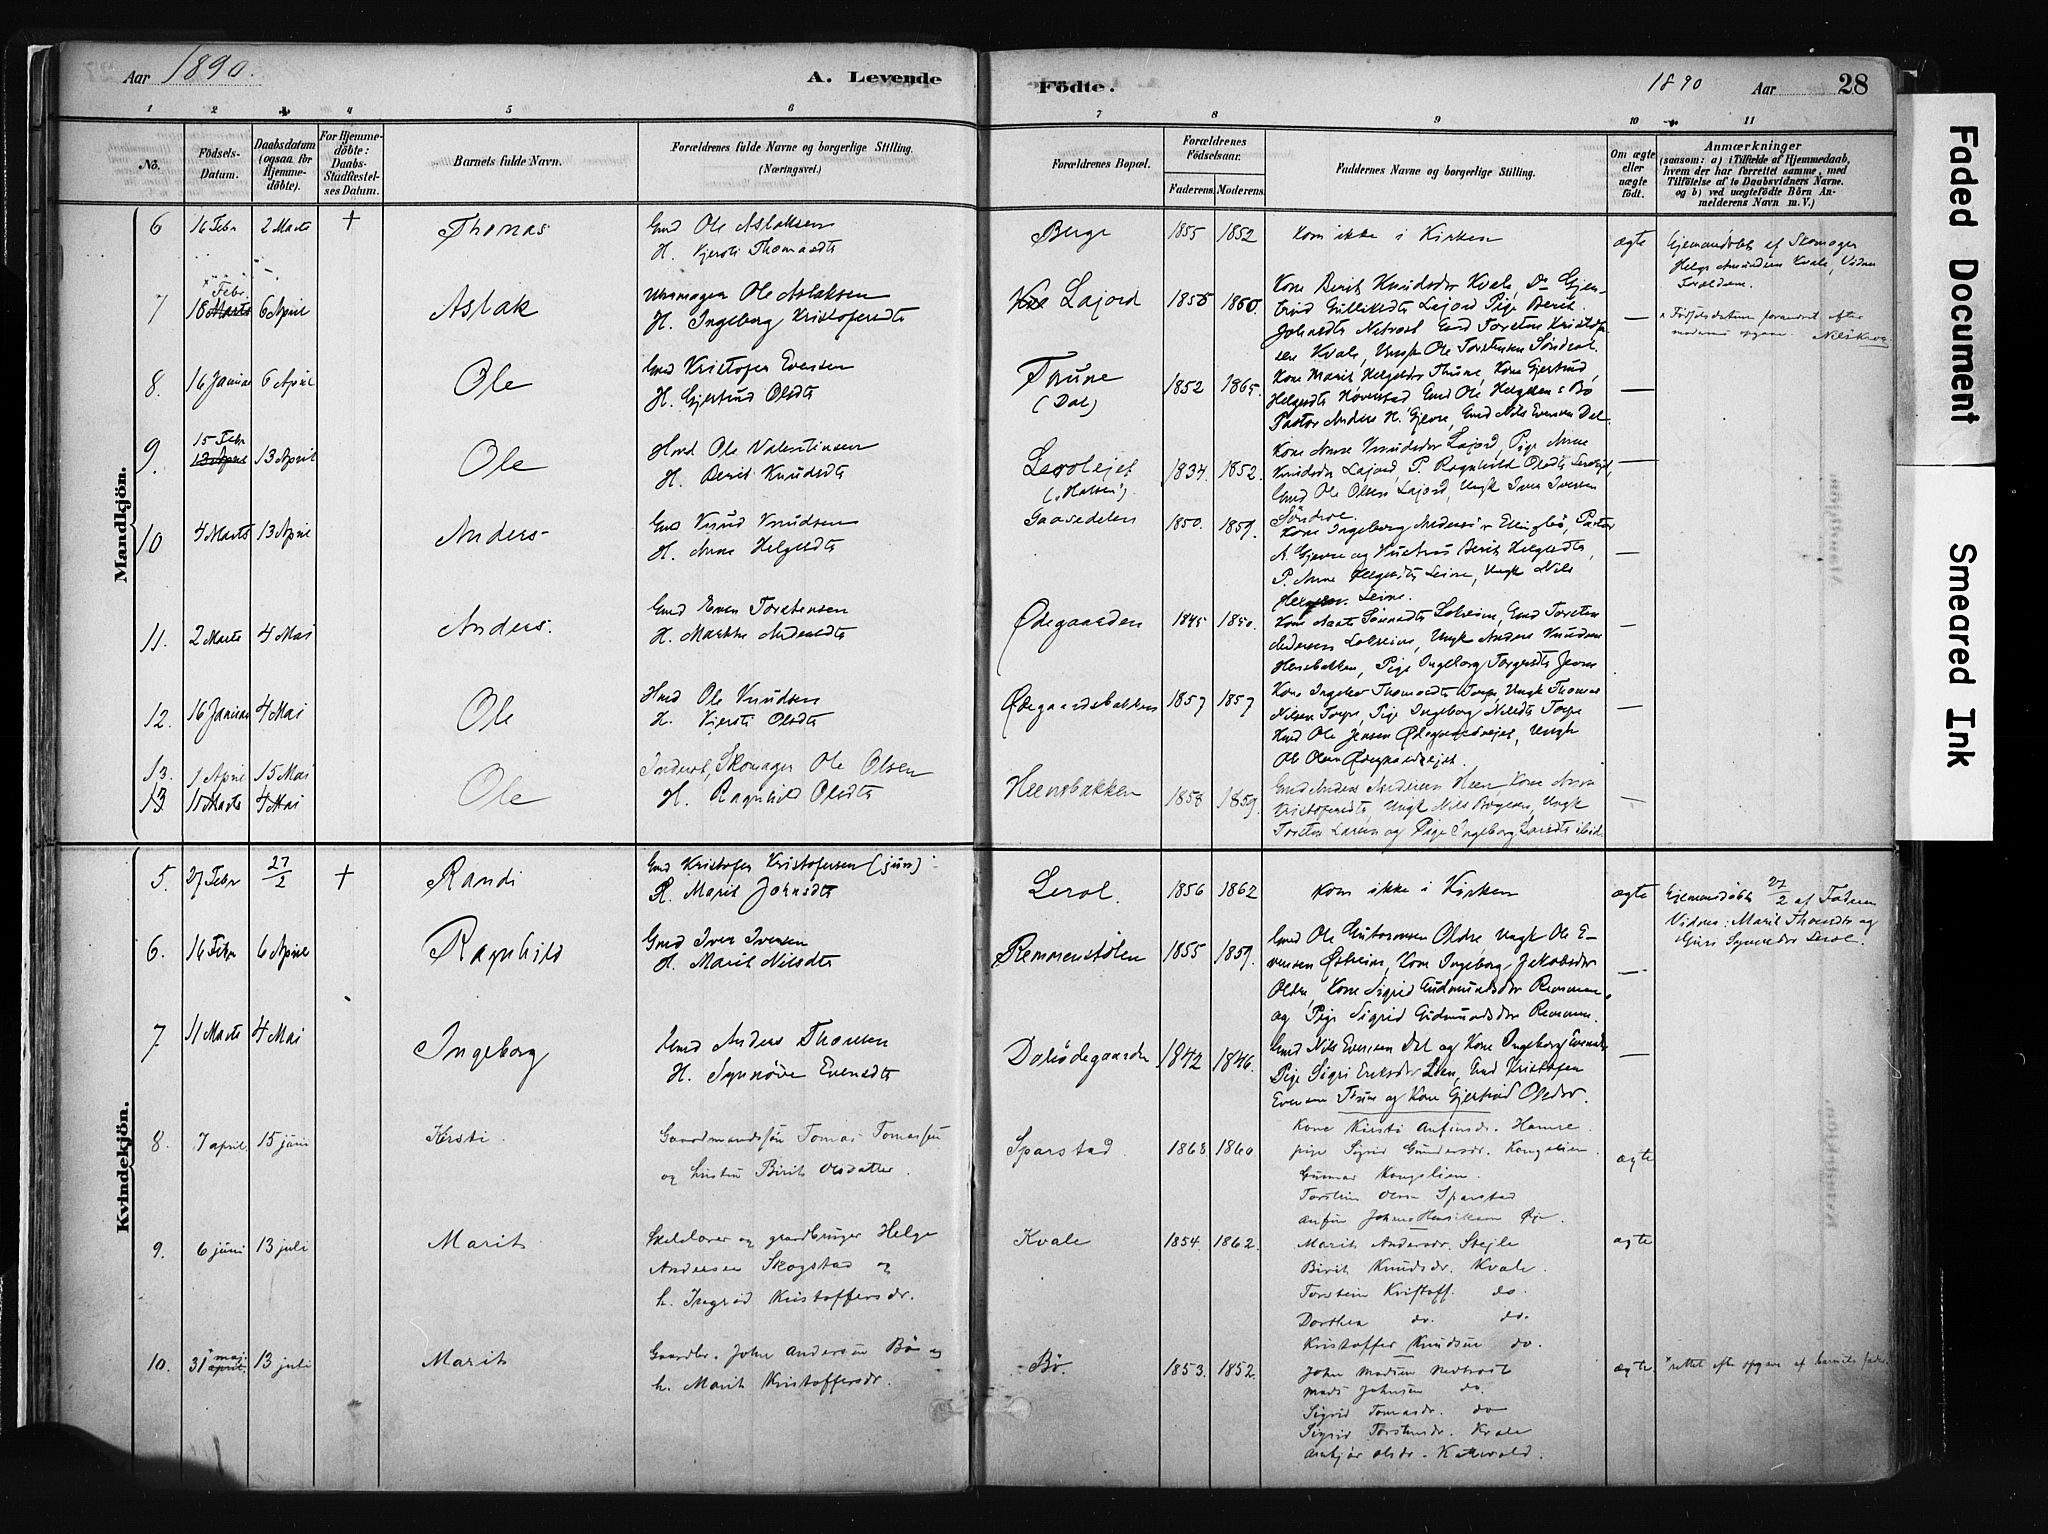 Aar 1890.
A. Levende
Födte.
1890 Aar 28
1 2 3 4 5 6 7 8 9 10 11
No.
Födsels-
Datum.
Daabsdatum
(ogsaa for
Hjemme-
döbte).
For Hjemme-
döbte:
Daabs-
Stadfæstel-
ses Datum.
Barnets fulde Navn.
Forældrenes fulde Navne og borgerlige Stilling.
(Næringsvei.)
Forældrenes Bopæl.
Forældrenes
Födselsaar.
Faderens. Moderens.
Faddernes Navne og borgerlige Stilling.
Om ægte
eller
uægte
födt.
Anmærkninger
(saasom: a) i Tilfælde af Hjemmedaab,
hvem der har forrettet samme, med
Tilföielse af to Daabsvidners Navne.
og b) ved uægtefödte Börn An-
melderens Navn m. V.)
Mandkjön.
6 16 Febr 2 Marts + Thomas
Gmd Ole Aslaksen
H. Kjersti Thomasdtr
Berge 1855 1852 Kom ikke i Kirken ægte
Hjemmedøbt af Skomager
Helge Amundsen Kvale, Vidner
Forældrene.
7 18 Marts Febr. 6 April Aslak
Uhrmager Ole Aslaksen
H. Ingeborg Kristofersdtr
Lajord 1855 1860.
Kone Berit Knudsdtr Kvale, Do Gjer-
trud Gulliksdtr Lajord Pige Berit
Johnsdtr Nedrost Gmd Torsten Kristof-
sen Kvale, Ungk Ole Torstensen Söndrol.
—
x Födselsdatum forandret efter
moderens opgave.
8. 16 Januar 6 April Ole
Gmd Kristofer Evensen
H. Gjertrud Olsdtr
Thune
(Dal)
1852 1865.
Kone Marit Helgesdr Thune, Kone Gjertrud
Helgesdtr Høverstad Gmd Ole Helgesen Bø
Pastor Anders H. Gjevre, Gmd Nils Evensen Dal.
—
9. 15 Febr 13 April 13 April Ole
Hmd Ole Valentinsen
H. Berit Knudsdtr
Lerolejet
("Halsen").
1834. 1852.
Kone Anne Knudsdr Lajord, Pige Anne
Knudsdr Lajord, P. Ragnhild Olsdtr Lerolejet,
Gmd Ole Olsen Lajord, Ungk Iver Iversen
Söndrol.
—
10 4 Marts 13 April Anders
Gmd Knud Knudsen
H. Anne Helgesdtr
Gaasedelen 1850. 1859.
Kone Ingeborg Andersdr Ellingbø, Pastor
A. Gjevre og Hustru Berit Helgesdtr,
P. Anne Helgesdtr Leine, Ungk Nils
Helgesen Leine.
—
11. 2 Marts 4 Mai Anders.
Gmd Even Torstensen
H. Marthe Andersdtr
Ødegaarden 1845 1850.
Andersen Lokreim, Ungk Anders Knudsen
Hensbakken, Pige Ingeborg Torgersdtr
—
12. 16 Januar 4 Mai Ole
Hmd Ole Knudsen
H. Kjersti Olsdtr
Ødegaardsbakken 1857 1857
Kone Ingebor Thomasdtr Torpe Ungk Thomas
Nilsen Torpe, Pige Ingeborg Nilsdtr Torpe
Hmd Ole Jensen Ødegaardsejet, Ungk
Ole Olsen Ødegaardsejet.
—
13. 1 April 15 Mai
13 11 Marts 4 Mai Ole
Inderst, Skomager Ole Olsen
H. Ragnhild Olsdtr
Heensbakken 1858 1859.
Gmd Anders Andersen Heen Kone Anna
Kristofersdtr, Ungk Nils Bøyesen, Ungk
Torsten Larsen og Pige Ingeborg Larsdtr ibid.
—
Kvindekjön.
5. 27 Febr 27/2 + Randi
Gmd Kristofer Kristofersen (jun)
H. Marit Johnsdtr
Lerol. 1856 1862 Kom ikke i Kirken ægte
Hjemmedøbt 27/2 af Faderen
Vidner: Marit Thomasdtr og
Guri Syversdr Lerol.
6. 16 Febr 6 April Ragnhild
Gmd Iver Iversen
H. Marit Nilsdtr
Remmenstölen 1855 1859.
Gmd Ole Guttormsen Oldre, Ungk Ole E-
vensen Østreim, Kone Ingeborg Jakobsdr
Oldre, Kone Sigrid Gudmundsdr Remmen,
og Pige Sigrid Gudmundsdr Remmen.
—
7. 11 Marts 4 Mai Ingeborg
Gmd Anders Thomsen
H. Synnøve Evensdtr
Dalsødegaarden 1842 1846.
Gmd Nils Evensen Dal og Kone Ingeborg Evensdr
Pige Sigri Eriksdr Lien, Gmd Kristofer
Evensen Thune og Kone Gjertrud Olsdr.
—
8. 7 april. 15 juni Kersti.
Gaardmandssøn Tomas Tomassen
og hustru Birit Olsdatter.
Sparstad. 1868 1860
Kone Kirsti Anfinsdr. Hamre.
pige Sigrid Gundersdr. Kongslien.
Gunnar Kongslien.
Torstein Olsen Sparstad
Anfin Johans Henriksen Øye.
ægte
9. 6 juni 13 juli Marit
Skolelærer og gaardbruger Helge
Andersen Skogstad og
h. Ingrid Kristoffersdr.
Kvale 1854. 1862.
Marit Andersdr. Steile
Birit Knudsdr. Kvale.
Torstein Kristoff. do.
Dorthea do. do.
Kristoffer Knudsen do.
ægte
10. 31 april. maj. 13 juli Marit
Gaardbr. John Andersen Bø og
h. Marit Kristoffersdr.
Bø. 1853. 1852.
John Madsen Nedrost
Mads Johnsen do.
Sigrid Tomasdr. do
Sigrid Torstensdr. Kvale
Ambjør Olsdr. Kattevold.
ægte.
x rettet efter opgave af barnets fader.
Faded Document
Smeared Ink